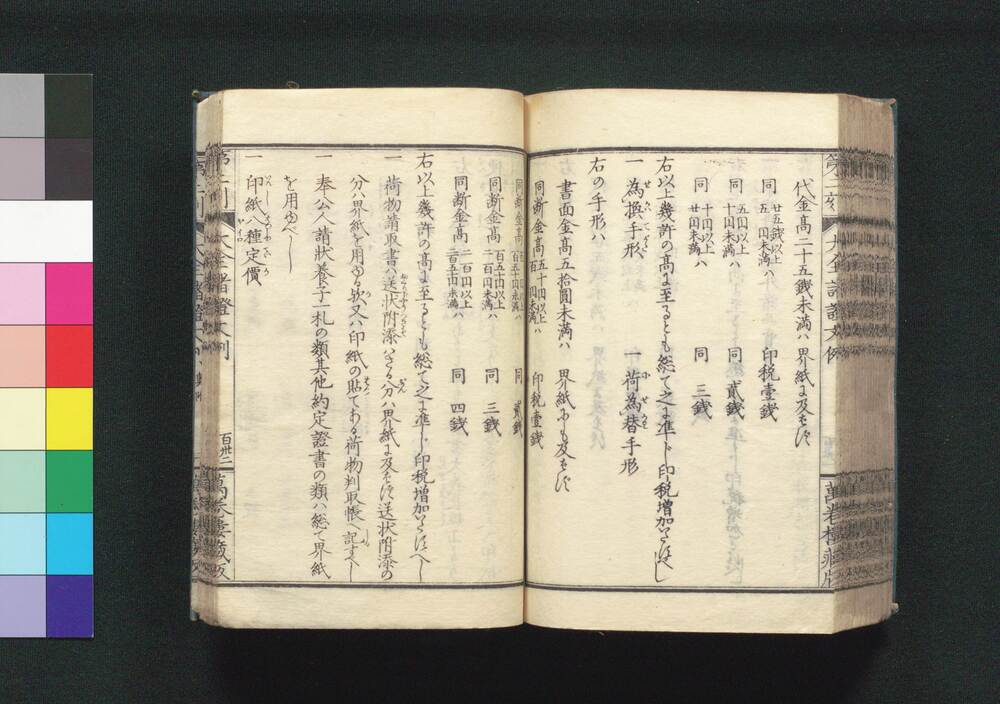 代金高二十五錢未満ハ 界紙に及ばず
同 廿五錢以上 五円未満ハ 印税壹錢
同 五円以上 十円未満ハ 同 貳錢
同 十円以上 廿円未満ハ 同 三錢
右以上幾許の高に至るとも総て之に準じ印税増加いたすべし
一 為換手形 一荷為替手形
右の手形ハ
書面金高五拾圓未満ハ 界紙にも及ばず
同断金高 五十円以上 百円未満ハ 印税壹錢
同断金高 百円以上 百五十円未満ハ 同 貳錢
同断金高 百五十円以上 二百円未満ハ 同 三錢
同断金高 二百円以上 二百五十円未満ハ 同 四錢
右以上幾許の高に至るとも総て之に準じ印税増加いたすべし
一 荷物請取書ハ送状附添いたる分ハ界紙に及ばず送状附添の
分ハ界紙を用ゆる歟又ハ印紙の貼てある荷物判取帳へ記すべし
一 奉公人請状養子一札の類其他約定證書の類ハ総て界紙
を用ゆべし
一 印紙八種定價
百卅二
萬巻樓蔵版